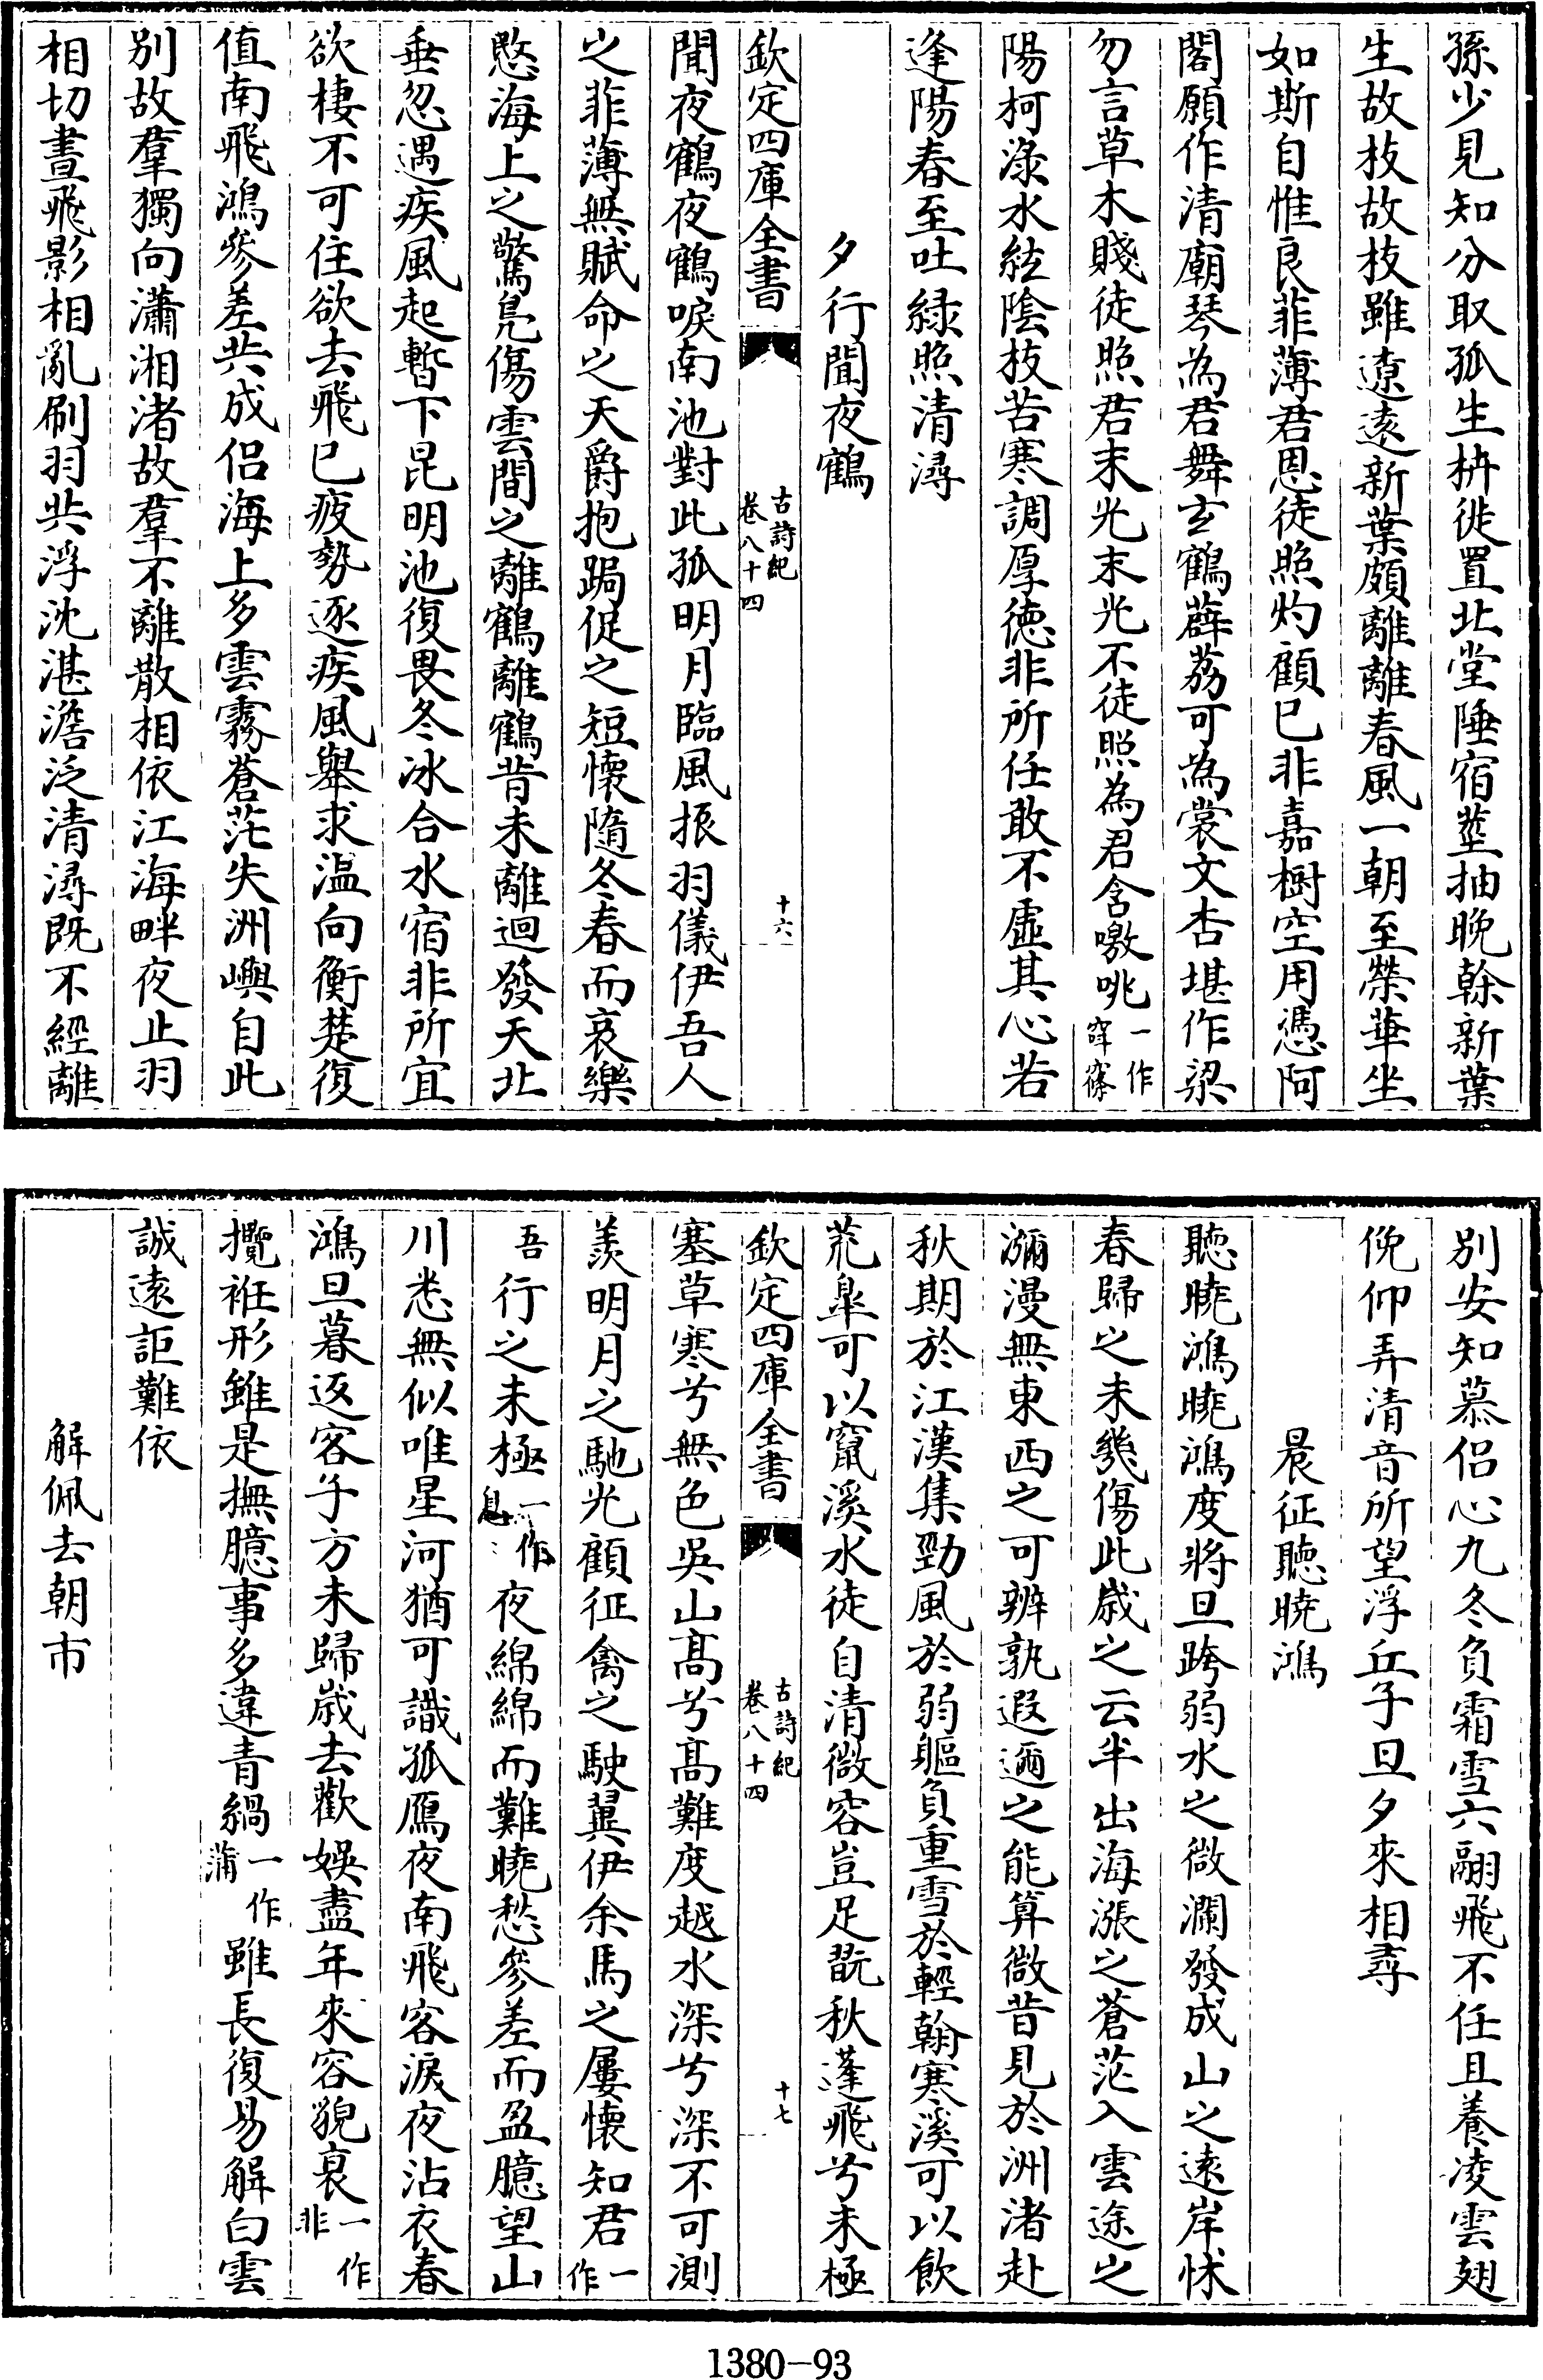 孫少見知分取孤生枿徙置北堂陲宿莖抽晚榦新葉
生故枝故枝雖遼遠新葉頗離離春風一朝至榮華坐
如斯自惟良菲薄君恩徒照灼顧已非嘉樹空用憑阿
閣願作清廟琴為君舞𤣥鶴薜荔可為裳文杏堪作梁
勿言草木賤徒照君末光末光不徒照為君含噭咷一作窣窱
陽柯淥水絃陰枝苦寒調厚徳非所任敢不虛其心若
逢陽春至吐緑照清潯
夕行聞夜鶴
欽定四庫全書
古詩紀
卷八十四
十六
聞夜鶴夜鶴唳南池對此孤明月臨風振羽儀伊吾人
之菲薄無賦命之天爵抱跼促之短懷隨冬春而哀樂
愍海上之驚鳧傷雲間之離鶴離鶴昔未離迴發天北
垂忽遇疾風起暫下昆明池復畏冬冰合水宿非所宜
欲棲不可住欲去飛已疲勢逐疾風舉求溫向衡楚復
值南飛鴻參差共成侶海上多雲霧蒼茫失洲嶼自此
別故羣獨向瀟湘渚故羣不離散相依江海畔夜止羽
相切晝飛影相亂刷羽共浮沈湛澹泛清潯既不經離
別安知慕侶心九冬負霜雪六翮飛不任且養凌雲翅
俛仰弄清音所望浮丘子旦夕來相尋
晨征聽曉鴻
聽曉鴻曉鴻度將旦跨弱水之微瀾發成山之遠岸怵
春歸之未幾傷此歲之云半出海漲之蒼茫入雲途之
瀰漫無東西之可辨孰遐邇之能算微昔見於洲渚赴
秋期於江漢集勁風於弱軀負重雪於輕翰寒溪可以飲
荒皐可以竄溪水徒自清微容豈足翫秋蓬飛兮未極
欽定四庫全書
古詩紀
卷八十四
十七
塞草寒兮無色吳山髙兮髙難度越水深兮深不可測
羨明月之馳光顧征禽之駛翼伊余馬之屢懷知君一作
吾行之未極一作息夜綿綿而難曉愁參差而盈臆望山
川悉無似唯星河猶可識孤鴈夜南飛客淚夜沾衣春
鴻旦暮返客子方未歸歲去歡娛盡年來容貌衰一作非
攬袵形雖是撫臆事多違青緺一作蒲雖長復易解白雲
誠遠詎難依
解佩去朝市
1380-93